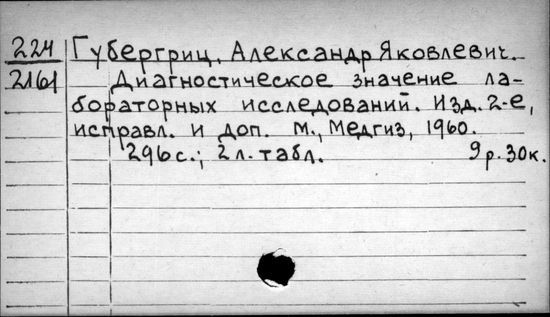 224 Губергриц, Александр Яковлевич.
2161 Диагностическое значение ла-
бораторных исследований. Изд. 2-е,
исправл. и доп. М., Медгиз, 1960.
296с.; 2л. табл. 9р. 30к.